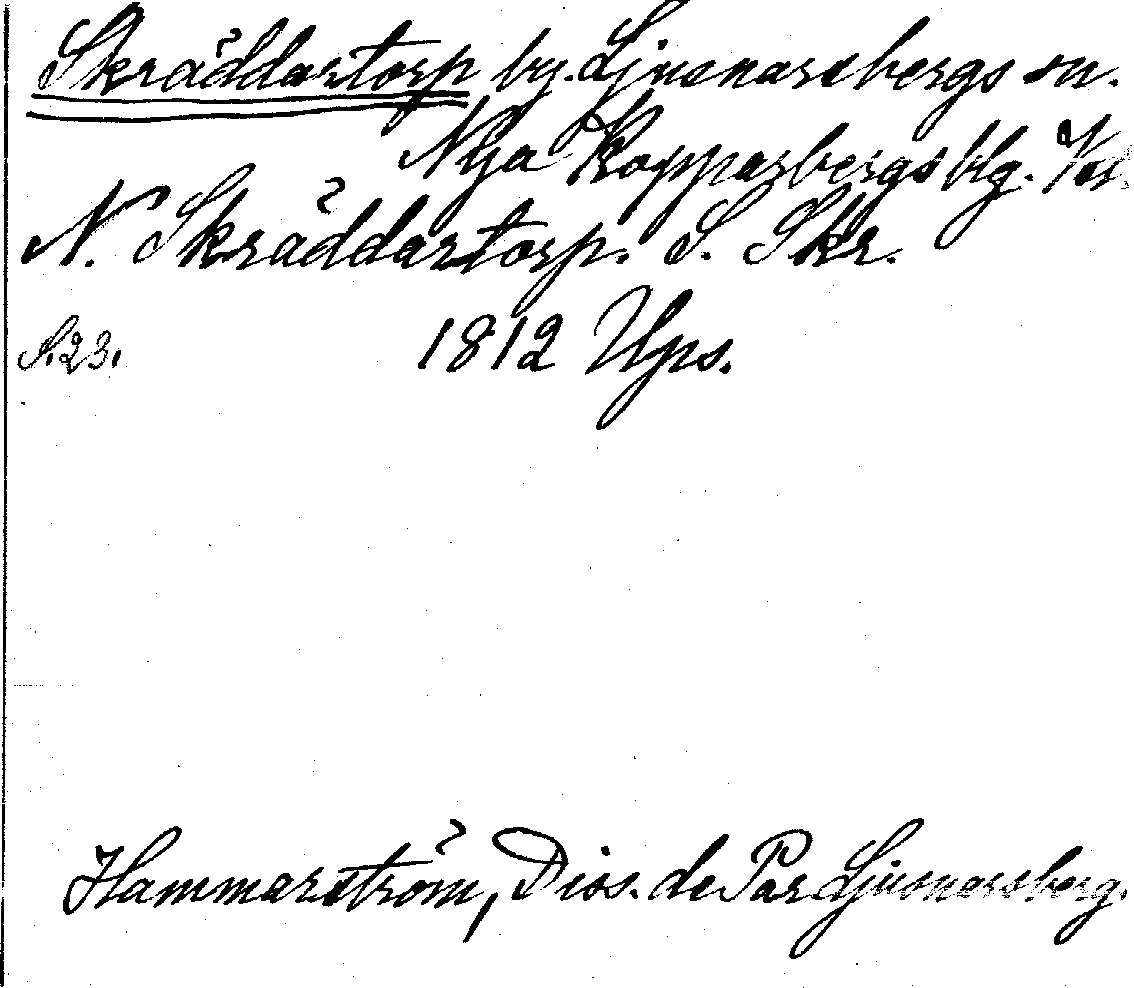 Skräddartorp by. Ljusnarsbergs sn.
Nya Kopparbergs blg. Vsl.
N. Skräddartorp. S. Skr.
S. 23. 1812 Ups.
Hammarström, Diss. de Par Ljusnarsberg.